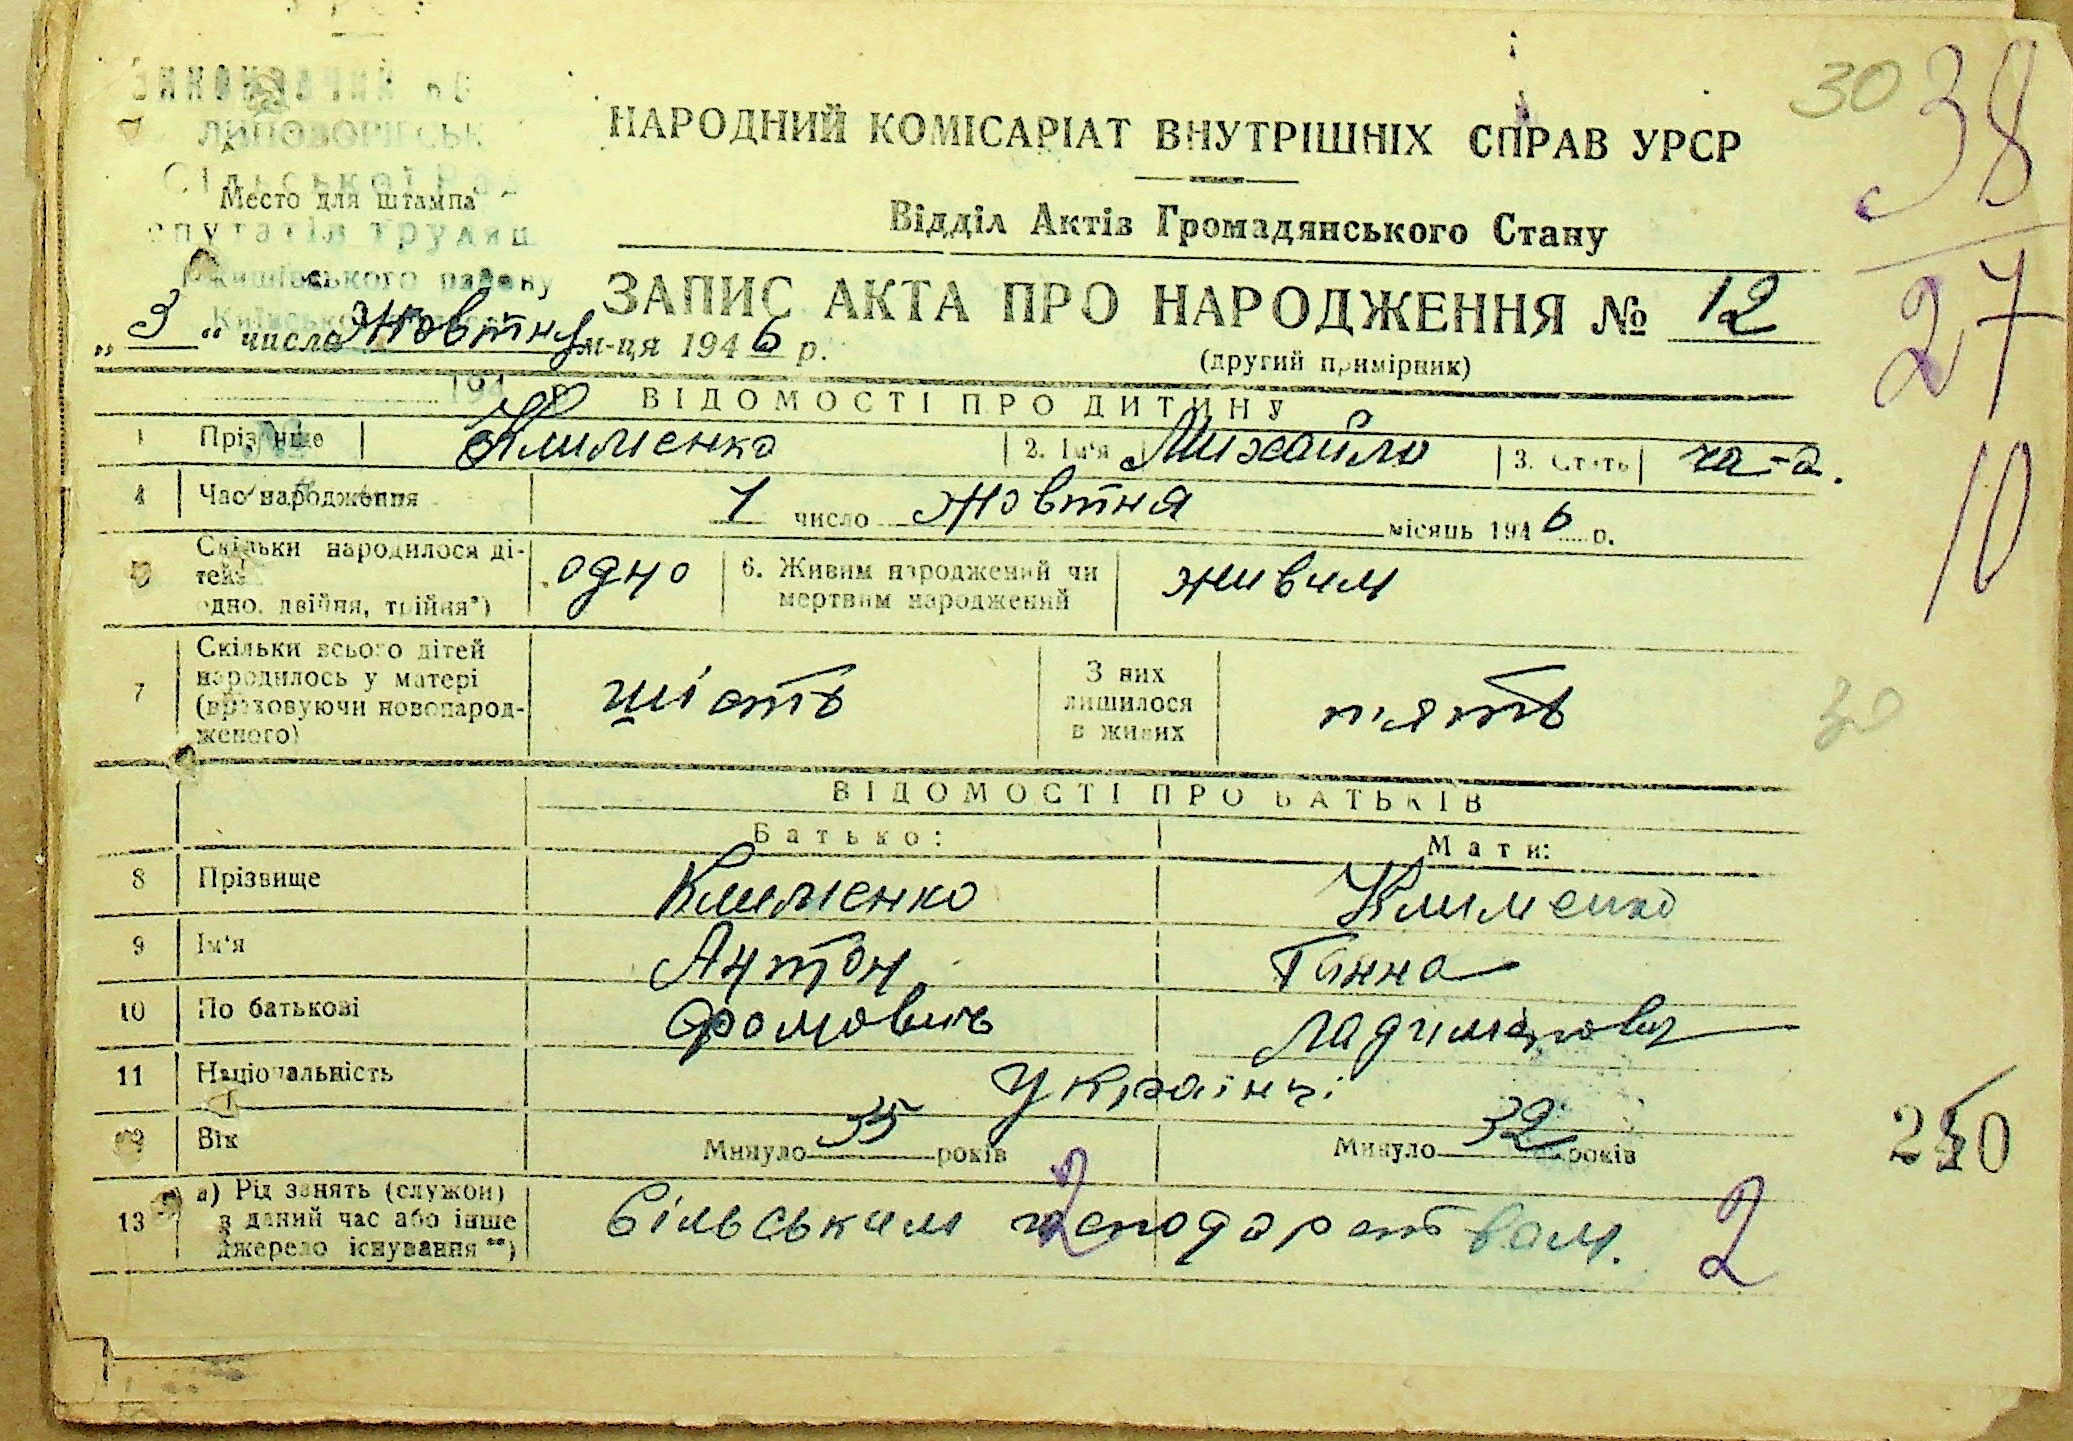 30
38
27
10
НАРОДНИЙ КОМІСАРІАТ ВНУТРІШНІХ СПРАВ УРСР
Відділ Актів Громадянського Стану
Место для штампа
ЗАПИС АКТА ПРО НАРОДЖЕННЯ № 12
(другий примірник)
„3“ числа Жовтня м-ця 1946 р.
ВІДОМОСТІ ПРО ДИТИНУ
1 Прізвище Клименко 2. Ім'я Михайло 3. Стать ча-а.
4 Час народження 1 число жовтня місяць 1946 р.
5 Скільки народилося ді-
тей:
одно, двійня, трійня*) одно
6. Живим народжений чи
мертвим народжений живим
7 Скільки всього дітей
народилось у матері
(враховуючи новонарод-
женого) шість
З них
лишилося
в живих п'ять
30
ВІДОМОСТІ ПРО БАТЬКІВ
Батько: Мати:
8 Прізвище Клименко Клименко
9 Ім'я Антон Ганна
10 По батькові Фомович
11 Національність Українці
12 Вік Минуло 35 років Минуло 32 років
13 а) Рід занять (служби)
в даний час або інше
джерело існування**) Сільським господарством.
2 2